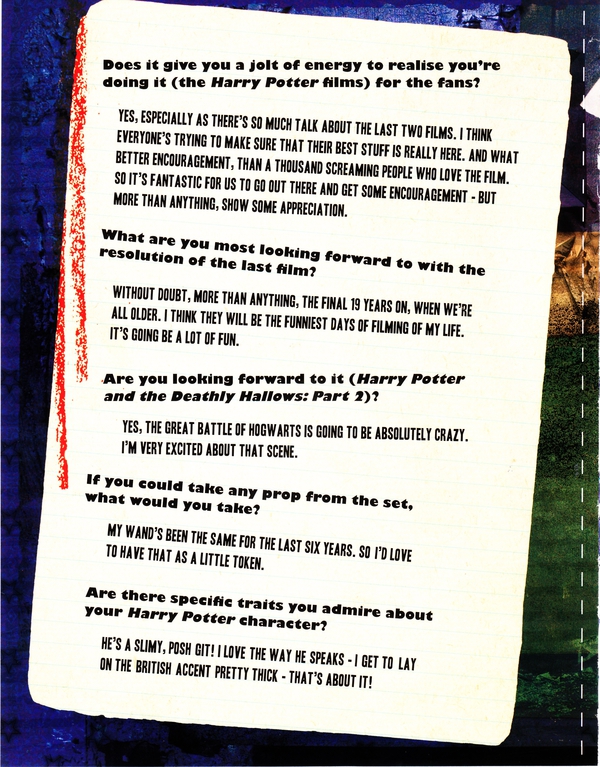 Does it give you a jolt of energy to realise you're
doing it (the Harry Potter films) for the fans?
YES, ESPECIALLY AS THERE'S SO MUCH TALK ABOUT THE LAST TWO FILMS. I THINK
EVERYONE'S TRYING TO MAKE SURE THAT THEIR BEST STUFF IS REALLY HERE. AND WHAT
BETTER ENCOURAGEMENT, THAN A THOUSAND SCREAMING PEOPLE WHO LOVE THE FILM.
SO IT'S FANTASTIC FOR US TO GO OUT THERE AND GET SOME ENCOURAGEMENT - BUT
MORE THAN ANYTHING, SHOW SOME APPRECIATION.
What are you most looking forward to with the
resolution of the last film?
WITHOUT DOUBT, MORE THAN ANYTHING, THE FINAL 19 YEARS ON, WHEN WE'RE
ALL OLDER. I THINK THEY WILL BE THE FUNNIEST DAYS OF FILMING OF MY LIFE.
IT'S GOING BE A LOT OF FUN.
Are you looking forward to it (Harry Potter
and the Deathly Hallows: Part 2)?
YES, THE GREAT BATTLE OF HOGWARTS IS GOING TO BE ABSOLUTELY CRAZY.
I'M VERY EXCITED ABOUT THAT SCENE.
If you could take any prop from the set,
what would you take?
MY WAND'S BEEN THE SAME FOR THE LAST SIX YEARS. SO I'D LOVE
TO HAVE THAT AS A LITTLE TOKEN.
Are there specific traits you admire about
your Harry Potter character?
HE'S A SLIMY, POSH GIT! I LOVE THE WAY HE SPEAKS - I GET TO LAY
ON THE BRITISH ACCENT PRETTY THICK - THAT'S ABOUT IT!